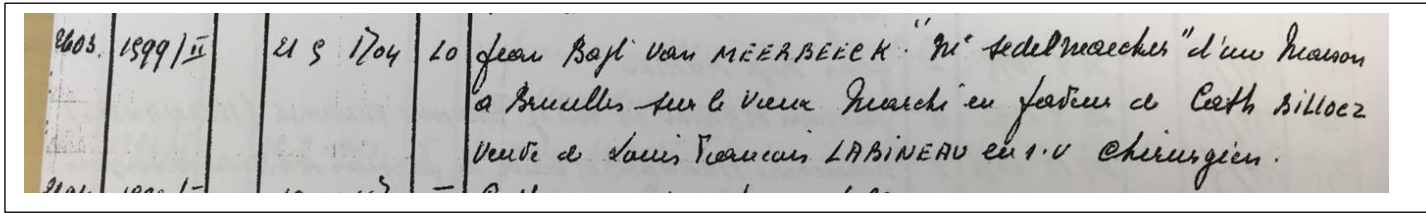 2603. 1599/II 21 9 1704 20 Jean Bapt van MEERBEECK. "Mr sedelmaecker" d'une Maison
a Bruxelles sur le vieux Marché en faveur de Cath BILLOEZ
veuve de Louis Francois LABINEAU en s.v chirurgien.